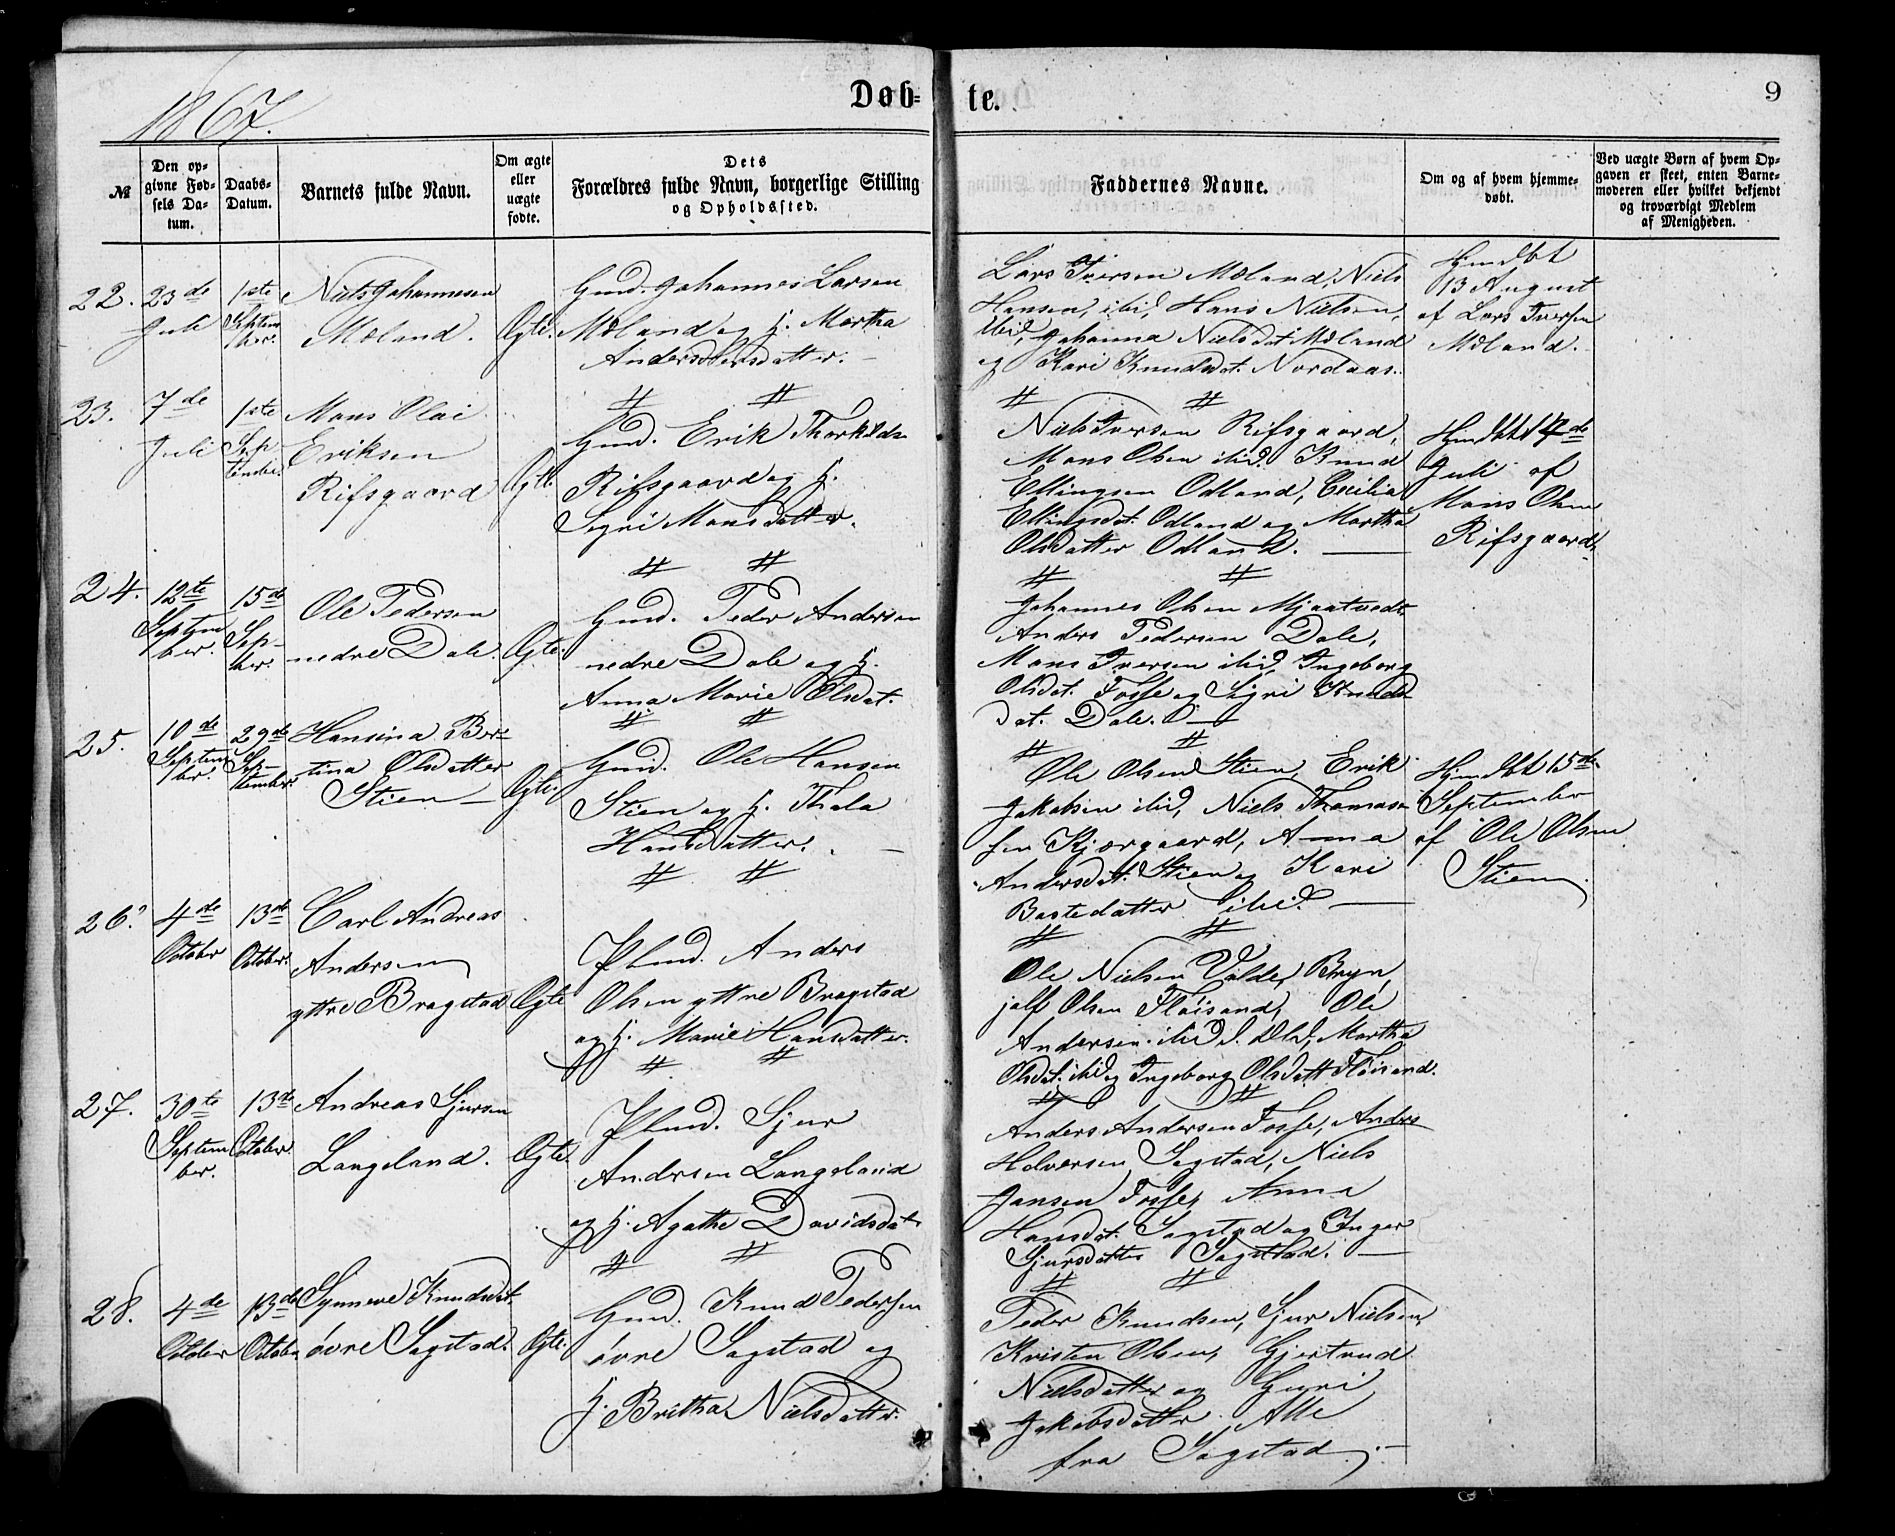 1867.
Døb-
te.
9
№
Den op-
givne Fød-
sels Da-
tum.
Daabs-
Datum.
Barnets fulde Navn.
Om ægte
eller
uægte
fødte.
Dets
Forældres fulde Navn, borgerlige Stilling
og Opholdssted.
Faddernes Navne.
Om og af hvem hjemme-
døbt.
Ved uægte Børn af hvem Op-
gaven er skeet, enten Barne-
moderen eller hvilket bekjendt
og troværdigt Medlem
af Menigheden.
22.
23de
Juli
1ste
Septem
ber.
Niels Johannesen
Mæland.
Ægte.
Gmd. Johannes Larsen
Mæland og H. Martha
Andersdatter.
Lars Iversen Mæland, Niels
Hansen, ibid, Hans Nielsen,
ibid, Johanna Nielsdat Mæland
og Kari Knudsdat. Nordaas.
Hjmdbt
13 August
af Lars Iversen
Mæland.
23.
7de
Juli
1ste
Sep
tember
Mons Olai
Eriksen
Rifsgaard
Ægte
Gmd. Erik Thorkilds
Rifsgaard og H.
Sigri Monsdatter.
Niels Iversen Rifsgaard,
Mons Olsen ibid. Knud
Ellingsen Odland, Cecilia
Ellingsdat. Odland og Martha
Olsdatter Odland.
Hjmdbt 14de
Juli af
Mons Olsen
Rifsgaard.
24.
12te
Septem
ber.
15de
Sep-
ber.
Ole Pedersen
nedre Dale.
Ægte.
Gmd. Peder Andersen
nedre Dale og H.
Anna Marie Olsdat.
Johannes Olsen Mjaatvedt
Anders Pedersen Dale,
Mons Iversen ibid, Ingeborg
Olsdat. Fosse og Sigri Knuds
dat. Dale.
25.
10de
Septem
ber.
29de
Sep-
tember.
Hansina Ber-
tina Olsdatter
Stien
Ægte.
Gmd. Ole Hansen
Stien og H. Thala
Hansdatter.
Ole Olsen Stien, Erik
Jakobsen ibid, Niels Thomas
sen Kjærgaard, Anna
Andersdat. Stien og Kari
Bastedatter ibid.
Hjmdbt 15de
September
af Ole Olsen
Stien.
26.
4de
October
13de
October.
Carl Andreas
Andersen
yttre Bragstad
Ægte
Plmd. Anders
Olsen yttre Bragstad
og H. Marie Hansdatter.
Ole Nielsen Valde, Bryn,
jolf Olsen Fløisand, Ole
Andersen ibid, Martha
Olsdat. ibid og Ingeborg Olsdatt Fløisand.
27.
30te
Septem
ber.
13de
October.
Andreas Sjursen
Langeland.
Ægte.
Plmd. Sjur
Andersen Langeland
og H. Agathe Davidsdat
Anders Andersen Fosse, Anders
Halvorsen Sagstad, Niels
Jansen Fosse, Anna
Hansdat. Sagstad og Inger
Sjursdatter Sagstad.
28.
4de
October
13de
October
Synneve Knudsdat.
øvre Sagstad.
Ægte.
Gmd. Knud Pedersen
øvre Sagstad og
H. Britha Nielsdatter.
Peder Knudsen, Sjur Nielsen,
Kristen Olsen, Gjertrud
Nielsdatter og Guri
Jakobsdatter. Alle
fra Sagstad.